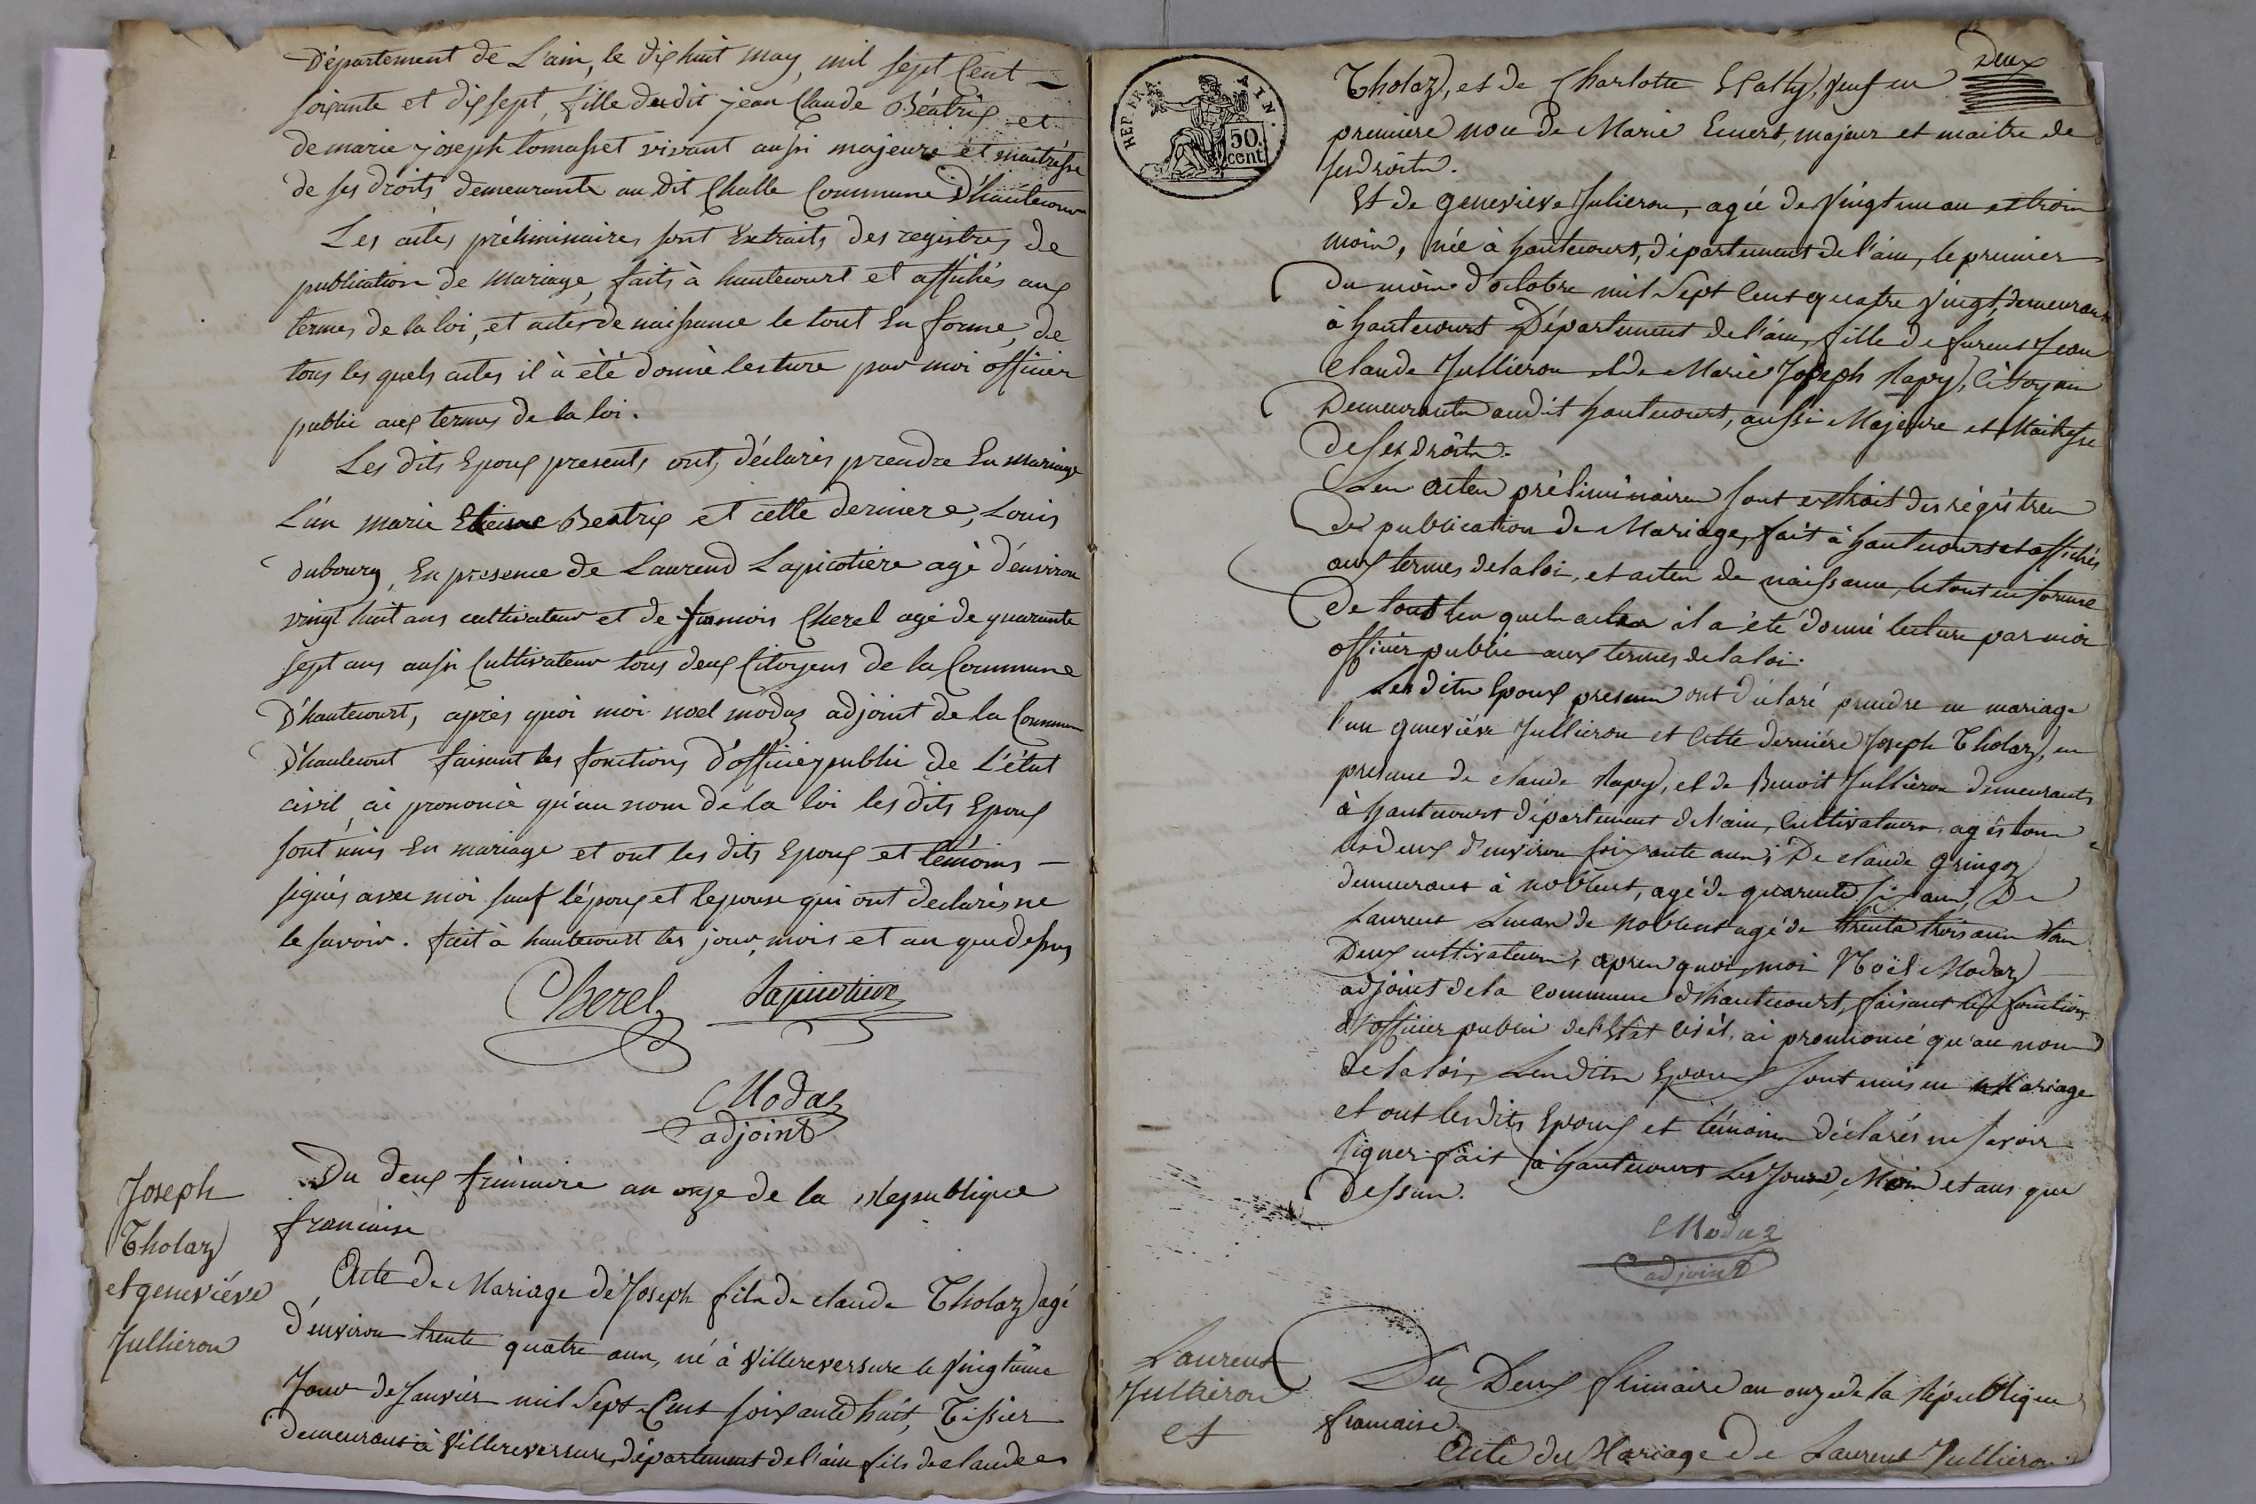 Département de L'ain, le dix huit may, mil sept Cent
soixante et dix sept, fille dudit jean Claude Béatrix et
de marie joseph tomasset vivant aussi majeure et maitresse
de ses droits demeurante au dit Challe Commune D'hautecour
Les actes préliminaires sont Extraits des registres de
publication de mariage, faits à hautecourt et affichés aux
termes de la loi, et actes de naissance le tout En forme, de
tous les quels actes il à été donné lecture par moi officier
public aux termes de la loi.
Les dits Epoux presents ont, déclarés prendre En mariage
L'un marie Beatrix et cette derniere, Louis
dubourg, En presence de Laurend Lapicotiere agé d'environ
vingt huit ans cultivateur et de francois Cherel agé de quarante
sept ans aussi Cultivateur tous deux Citoyens de la Commune
D'hautecourt, après quoi moi noel modaz adjoint de la Commune
D'hautecourt faisant les fonctions D'officier public de L'état
civil, ai prononcé qu'au nom de la loi les dits Epoux
sont unis En mariage et ont les dits Epoux et témoins
signés avec moi sauf l'époux et l'epouse qui ont declarés ne
le savoir. fait à hautecourt les jour, mois et an que dessus
Cherel Lapicotiere
Modaz
adjoint
Joseph
Tholaz
et geneviéve
Jullieron
Du deux frimaire an onze de la Republique
francaise
Acte de Mariage de Joseph fils de claude Tholaz agé
d'environ trente quatre ans, né à Villereversure le Vingtième
Jour de Janvier mil Sept Cent soixante huit, Tissier
demeurant à Villereversure, département de l'ain fils de claude
REP. FRA. AIN.
50.
cent
Deux
Tholaz, et de Charlotte veuf en
premiere noce de Marie majeur et maitre de
ses droits.
Et de geneviève Julieron, agée de Vingt un an et trois
mois, née à hautecourt, département de l'ain, le premier
du mois d'octobre mil Sept Cent quatre Vingt, demeurant
à hautecourt Département de l'ain, fille de furent Jean
Claude Jullieron et de Marie Joseph Rapy, Citoyen
Demeurante audit hautecourt, aussi Majeure et Maitresse
de ses droits.
Les actes préliminaires sont extrait des régistres
de publication de Mariage, fait à hautecourt et affichés
aux termes de la loi, et actes de naissance, le tout en forme
De tout les quels actes il a été donné lecture par moi
officier public aux termes de la loi.
Les dits Epoux presens ont déclaré prendre en mariage
l'un geneviève Jullieron et Cette derniére Joseph Tholaz, en
presence de claude Rapy, et de Benoit Jullieron demeurants
à hautecourt département de l'ain, Cultivateurs agés tous
les deux d'environ soixante ans; De claude gringoz
demeurant à noblens, agé de quarente six ans, De
Laurent de noblens agé de trente trois ans tous
Deux cultivateurs, apres quoi, moi Noël Modaz
adjoint de la commune d'hautecourt, faisant les fonctions
d'officier public de l'Etat Civil, ai prononcé qu'au nom
de la loi, Les dits Epoux sont unis en Mariage
et ont les dits Epoux et témoins déclarés ne savoir
signer. fait à hautecourt Les Jours, Mois et ans que
dessus.
Modaz
adjoint
Laurent
Jullieron
et
Du Deux frimaire an onze de la République
francaise.
Acte du Mariage de Laurent Jullieron